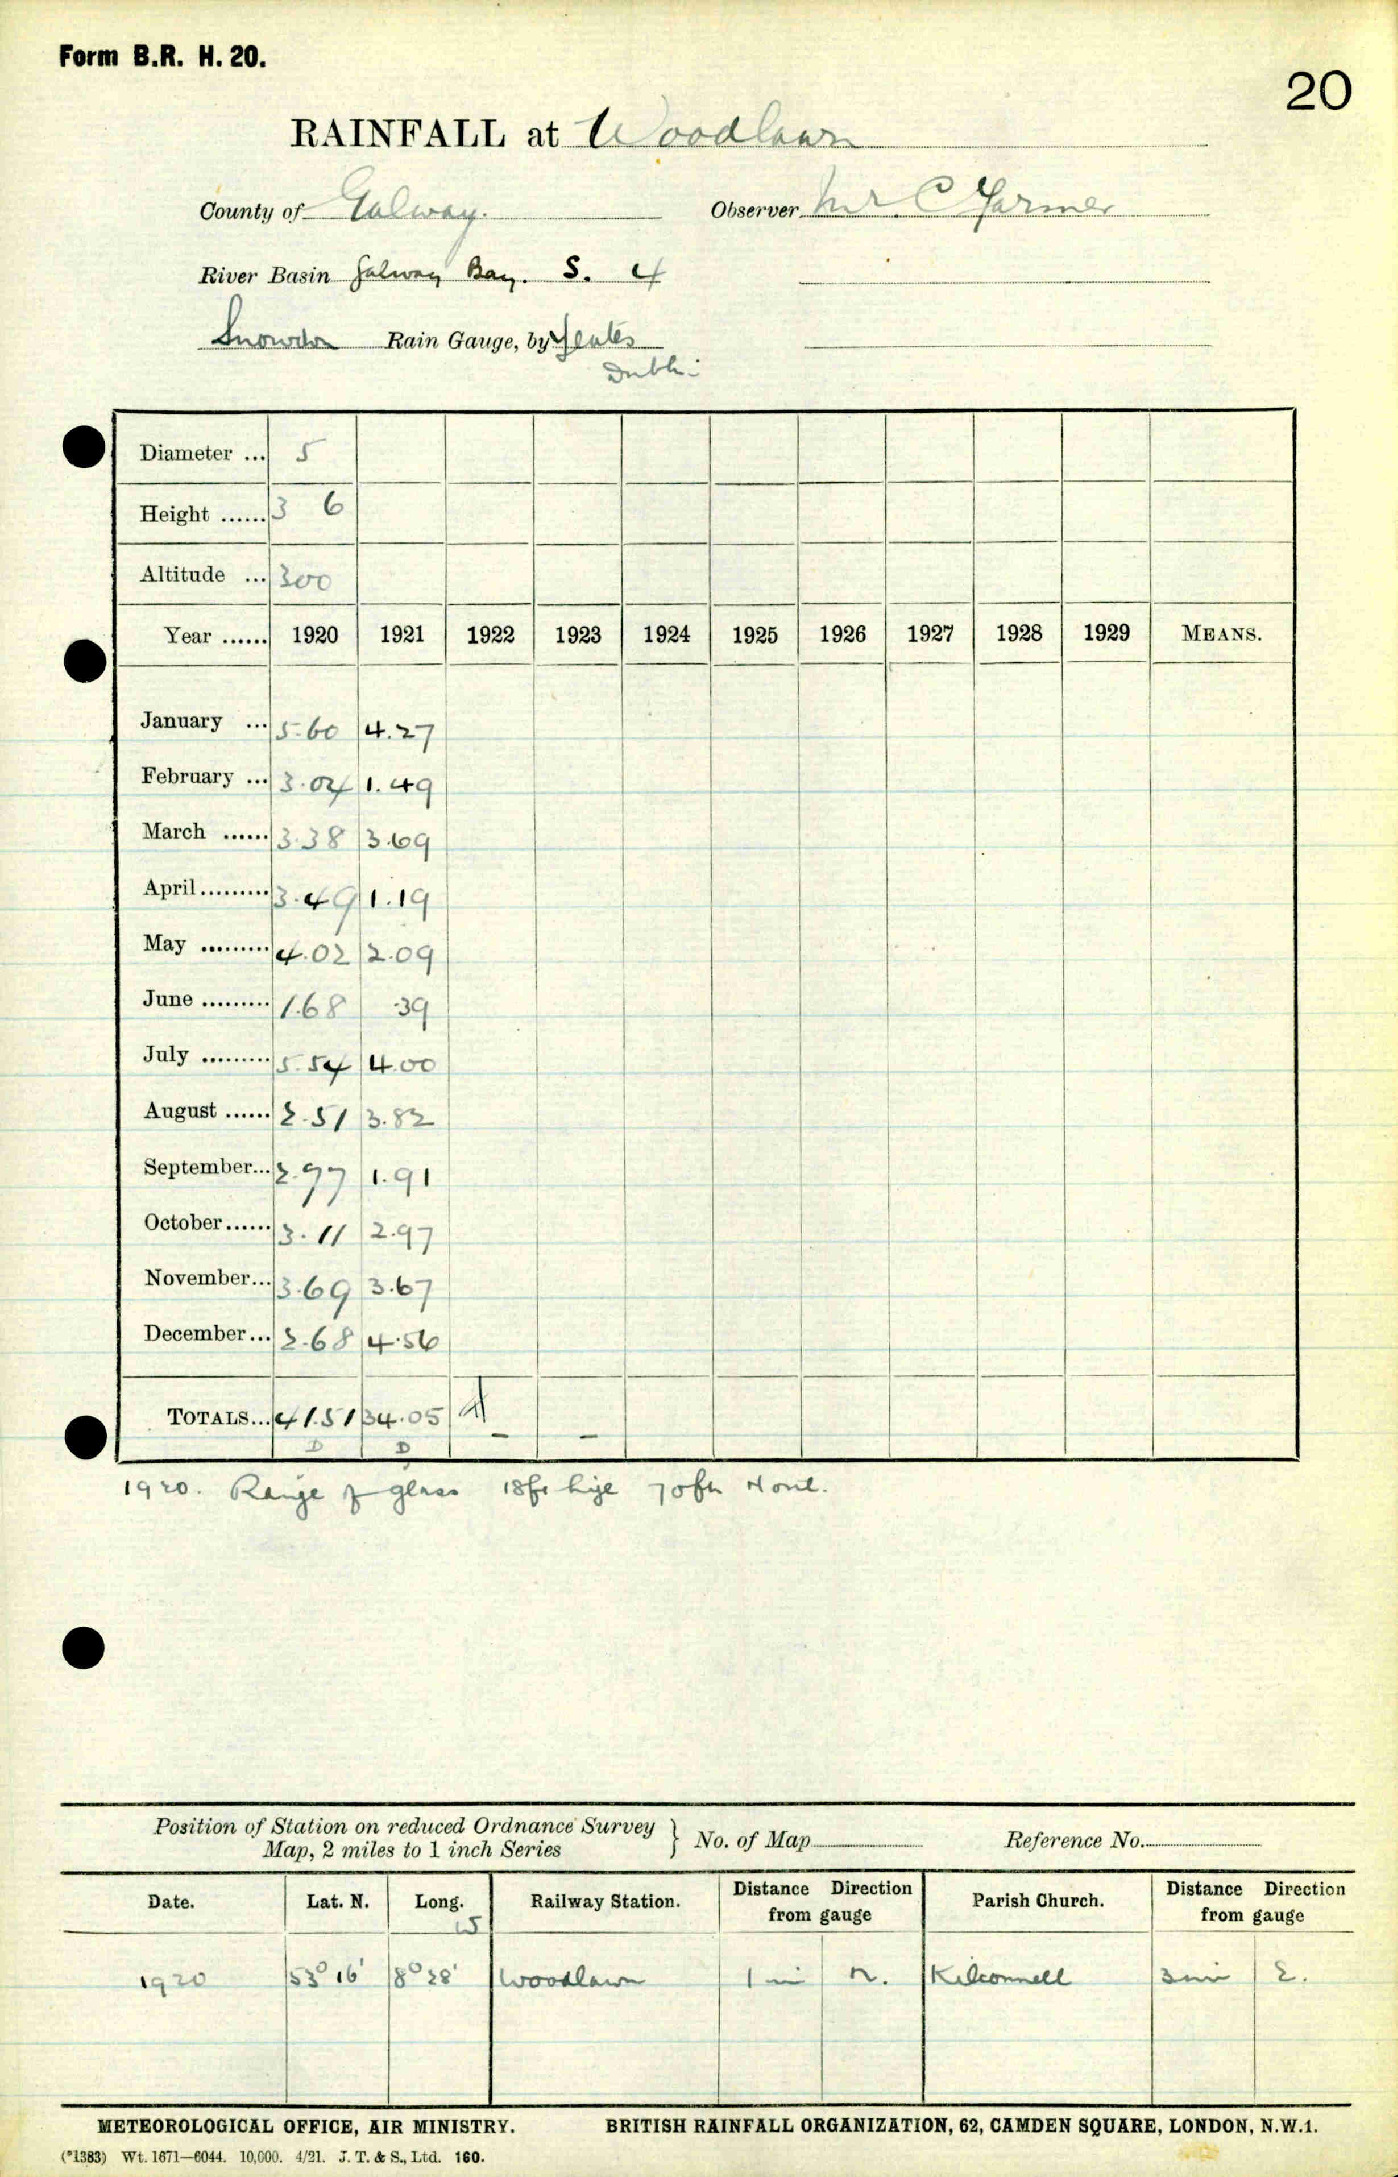 Form B.R. H. 20.
20
RAINFALL at Woodlawn
County of Galway. Observer Mr. C Farmer
River Basin Galway Bay. S. 4
Snowdon Rain Gauge, by Yeates
Dublin
Diameter ... 5
Height ...... 3 6
Altitude ... 300
Year ...... 1920 1921 1922 1923 1924 1925 1926 1927 1928 1929 MEANS.
January ... 5.60 4.27
February ... 3.04 1.49
March ...... 3.38 3.69
April......... 3.49 1.19
May ......... 4.02 2.09
June ......... 1.68 .39
July ......... 5.54 4.00
August ...... 2.51 3.82
September... 2.97 1.91
October...... 3.11 2.97
November... 3.69 3.67
December... 2.68 4.56
TOTALS... 41.51 34.05 – –
D D
1920. Range of glass 18ft high 70ft
Position of Station on reduced Ordnance Survey
Map, 2 miles to 1 inch Series } No. of Map Reference No.
Date. Lat. N. Long. W Railway Station. Distance Direction from gauge Parish Church. Distance Direction from gauge
1920 53° 16' 8° 28' Woodlawn 1 mi N. Kilconnell 3 mi E.
METEOROLOGICAL OFFICE, AIR MINISTRY. BRITISH RAINFALL ORGANIZATION, 62, CAMDEN SQUARE, LONDON, N.W.1.
(*1383) Wt. 1671—6044. 10,000. 4/21. J. T. & S., Ltd. 160.